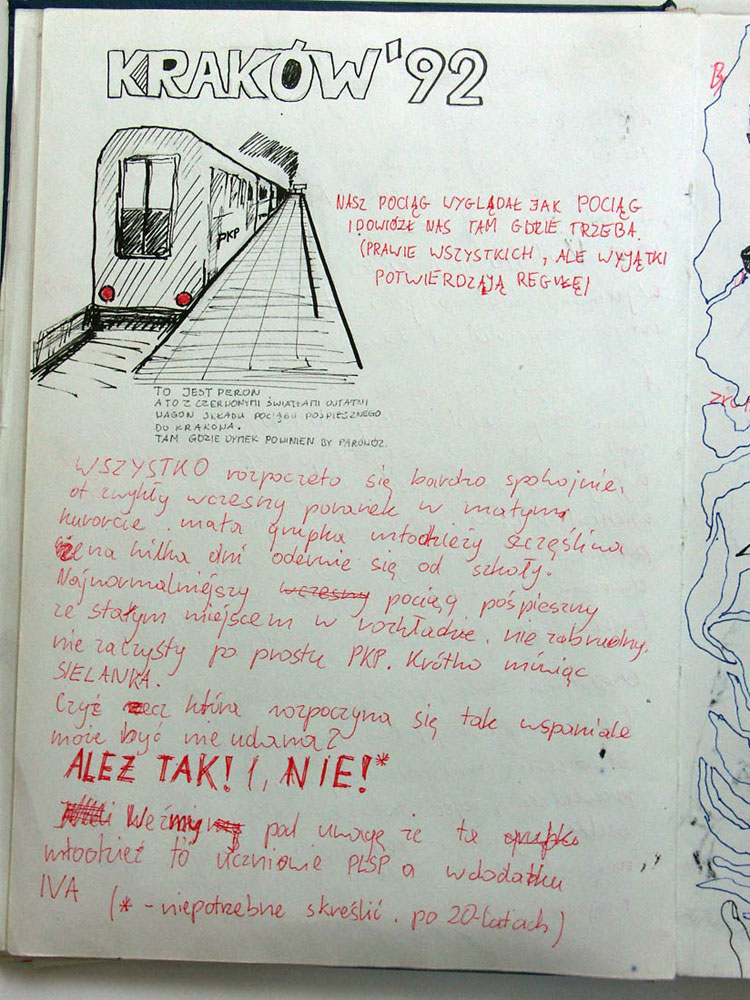 KRAKÓW '92
PKP
NASZ POCIĄG WYGLĄDAŁ JAK POCIĄG
I DOWIÓZŁ NAS TAM GDZIE TRZEBA.
(PRAWIE WSZYSTKICH, ALE WYJĄTKI
POTWIERDZAJĄ REGUŁĘ)
TO JEST PERON
A TO Z CZERWONYMI ŚWIATŁAMI OSTATNI
WAGON SKŁADU POCIĄGU POŚPIESZNEGO
DO KRAKOWA.
TAM GDZIE DYMEK POWINIEN BY PAROWÓZ.
WSZYSTKO rozpoczęło się bardzo spokojnie,
ot zwykły wczesny poranek w małym
kurorcie. mała grupka młodzieży szczęśliwa
że na kilka dni oderwie się od szkoły.
Najnormalniejszy wczesny pociąg pośpieszny
ze stałym miejscem w rozkładzie. nie zabrudny,
nie zaczysty po prostu PKP. Krótko mówiąc
SIELANKA.
Czyż rzecz która rozpoczyna się tak wspaniale
może być nie udana?
ALEŻ TAK! I, NIE!*
Weźmy pod uwagę że ta grupka
młodzież to uczniowie PLSP a wdodatku
IVA (* - niepotrzebne skreślić. po 20-latach)